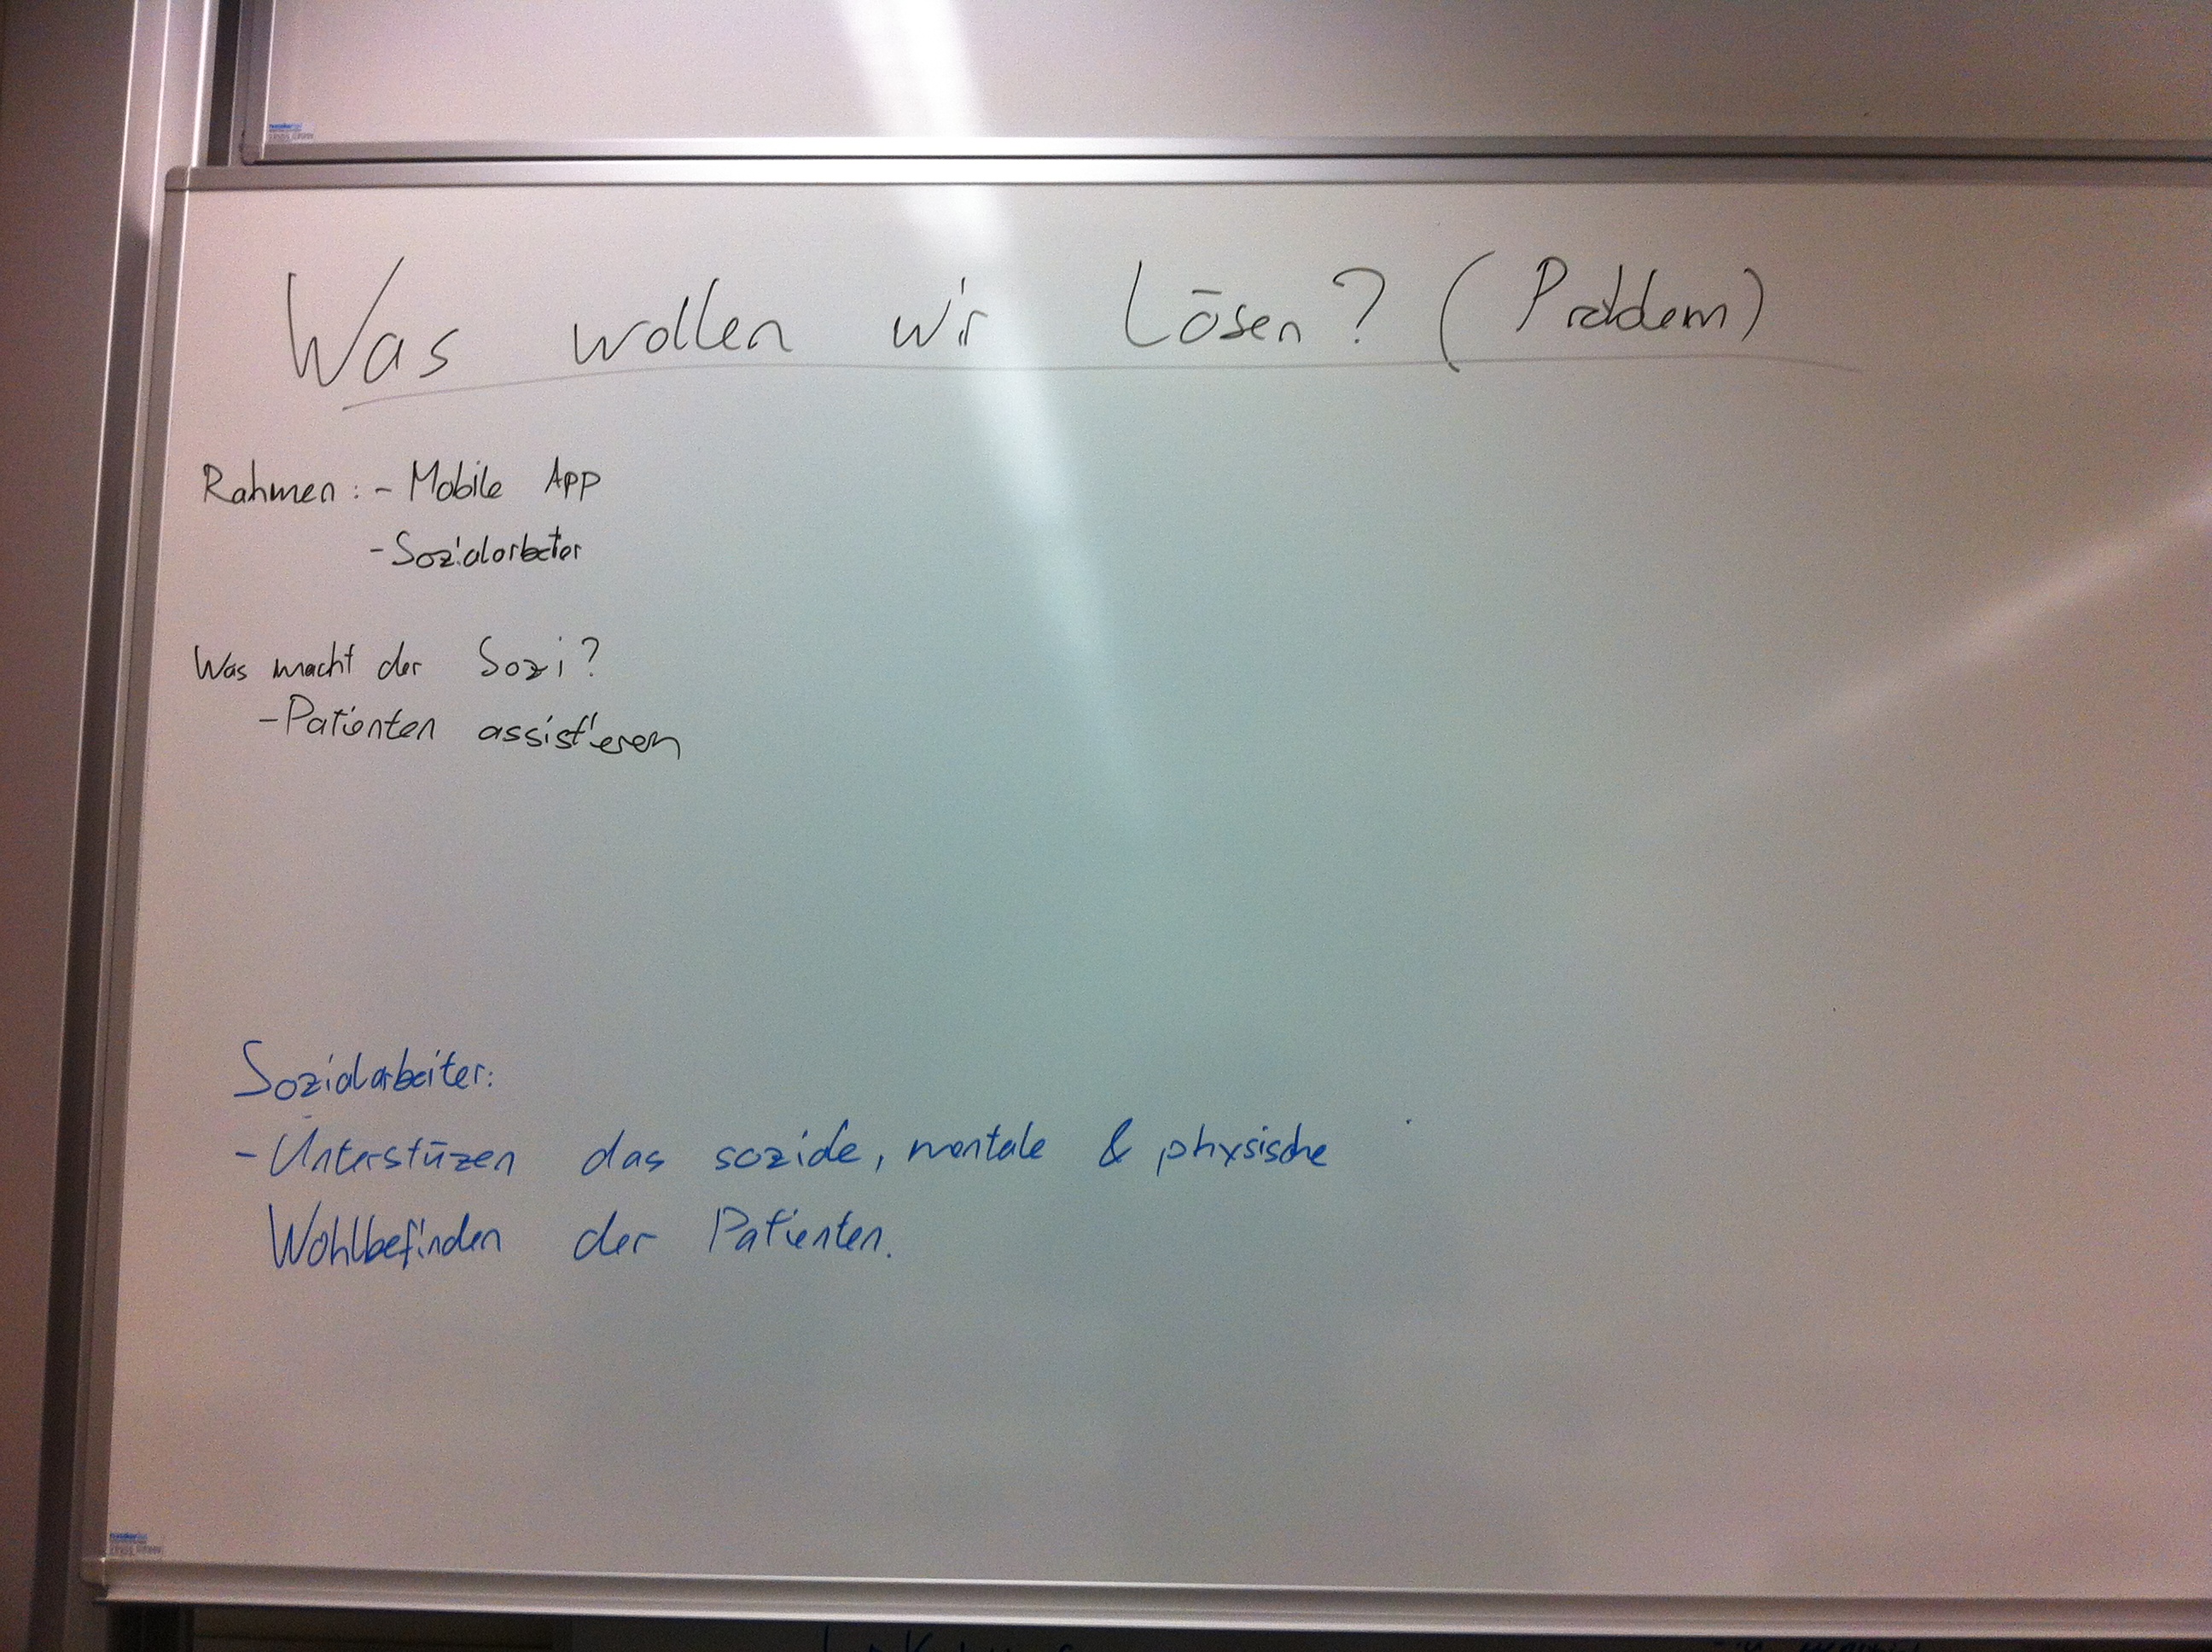 Was wollen wir Lösen? (Problem)
Rahmen: - Mobile App
- Sozialarbeiter
Was macht der Sozi?
- Patienten assistieren
Sozialarbeiter:
- Unterstüzen das soziale, mentale & physische
Wohlbefinden der Patienten.